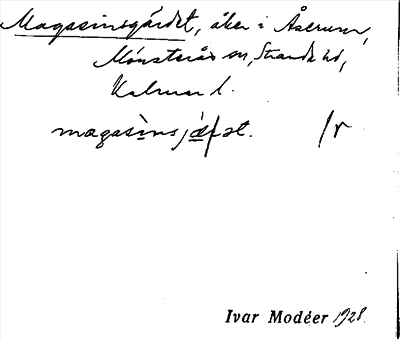 Magasinsgärdet, åker i Åserum,
Mönsterås sn, Stranda hd,
Kalmar l.
magasìnsjæ̀ṣət. /r
Ivar Modéer 1928.